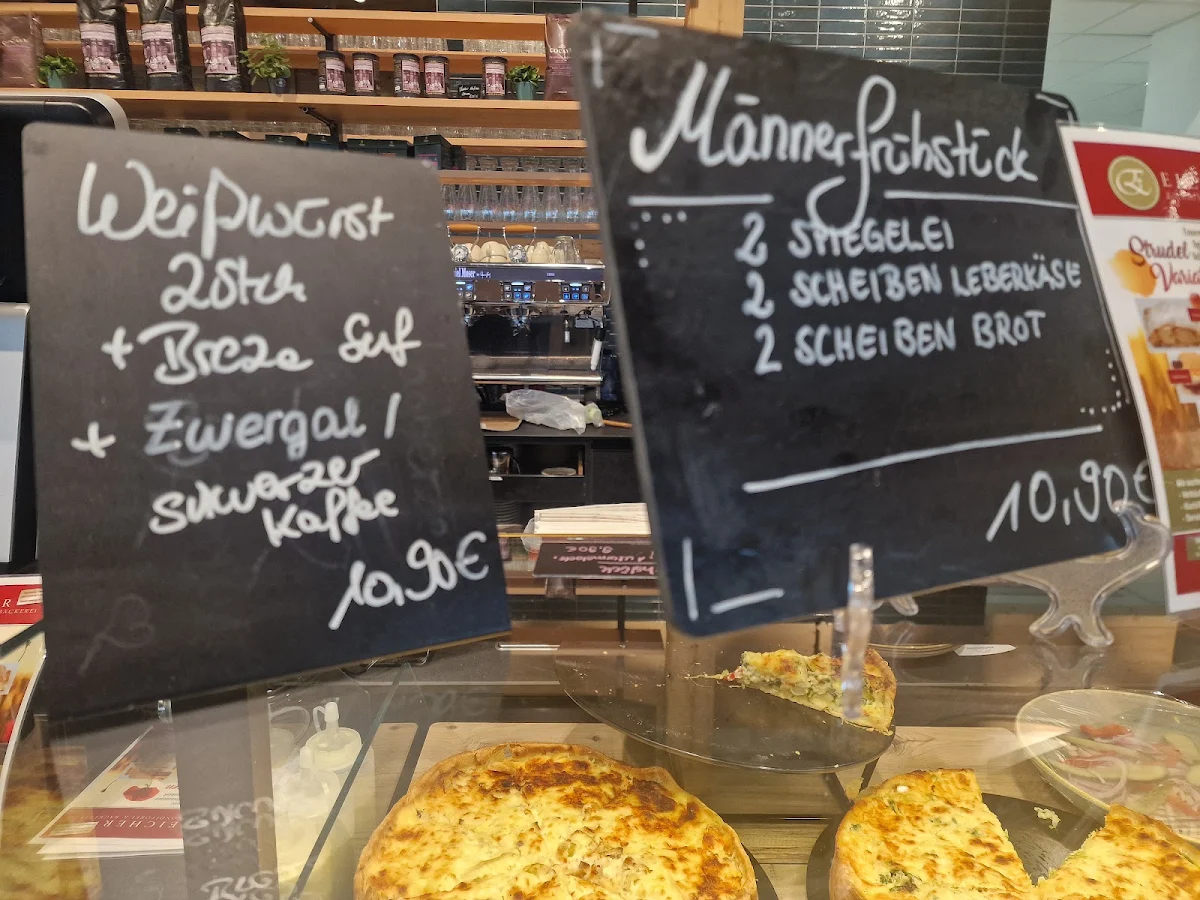 Weißwurst
2Stck
+ Breze Senf
+ Zwergal /
schwarzer
Kaffee
10,90€
Männerfrühstück
2 SPIEGELEI
2 SCHEIBEN LEBERKÄSE
2 SCHEIBEN BROT
10,90€
Strudel
9.90€
EICHER